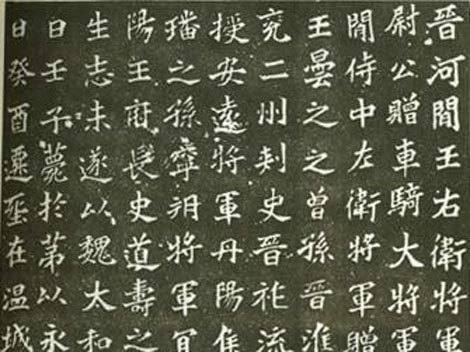 晉河間王右衛將軍
尉公贈車騎大將軍
間侍中左衛將軍贈
王曇之之曾孫晉淮
兗二州刺史晉祚流
授安遠將軍丹陽侯
璠之孫寧朔將軍宜
陽王府長史道壽之
生志未遂以魏太和
日壬子薨於第以永
日癸酉遷塟在温城